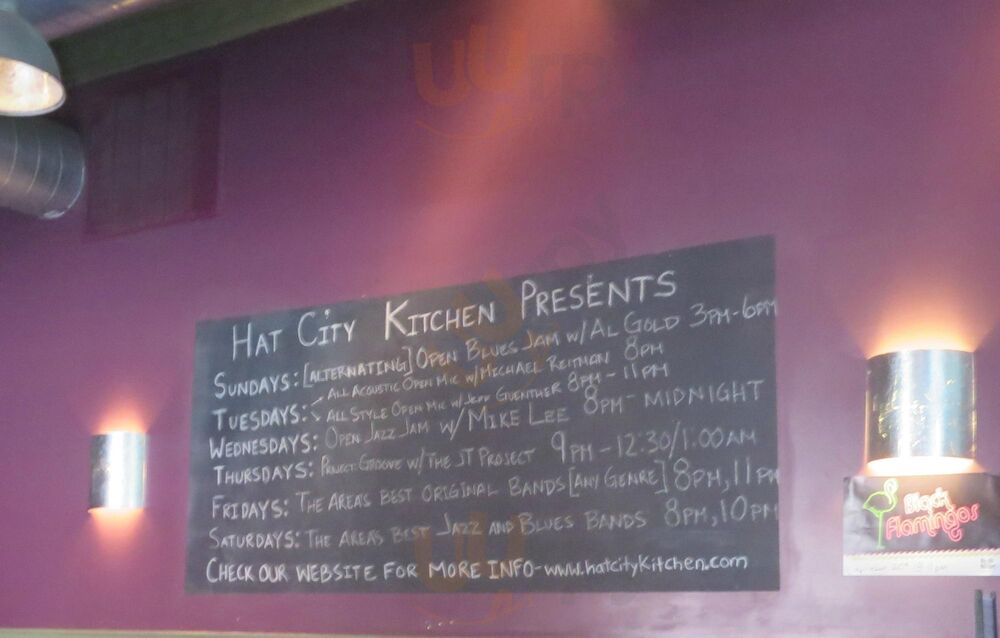 HAT CITY KITCHEN PRESENTS
SUNDAYS: [ALTERNATING] OPEN BLUES JAM W/AL GOLD 3PM-6PM
TUESDAYS: ALL ACOUSTIC OPEN MIC W/MICHAEL REITMAN 8PM
ALL STYLE OPEN MIC W/JEFF GUENTHER 8PM-11PM
WEDNESDAYS: OPEN JAZZ JAM W/MIKE LEE 8PM-MIDNIGHT
THURSDAYS: PROJECT GROOVE W/THE JT PROJECT 9PM-12:30/1:00AM
FRIDAYS: THE AREA'S BEST ORIGINAL BANDS [ANY GENRE] 8PM, 11PM
SATURDAYS: THE AREAS BEST JAZZ AND BLUES BANDS 8PM, 10PM
CHECK OUR WEBSITE FOR MORE INFO-www.hatcitykitchen.com
Black
Flamingos